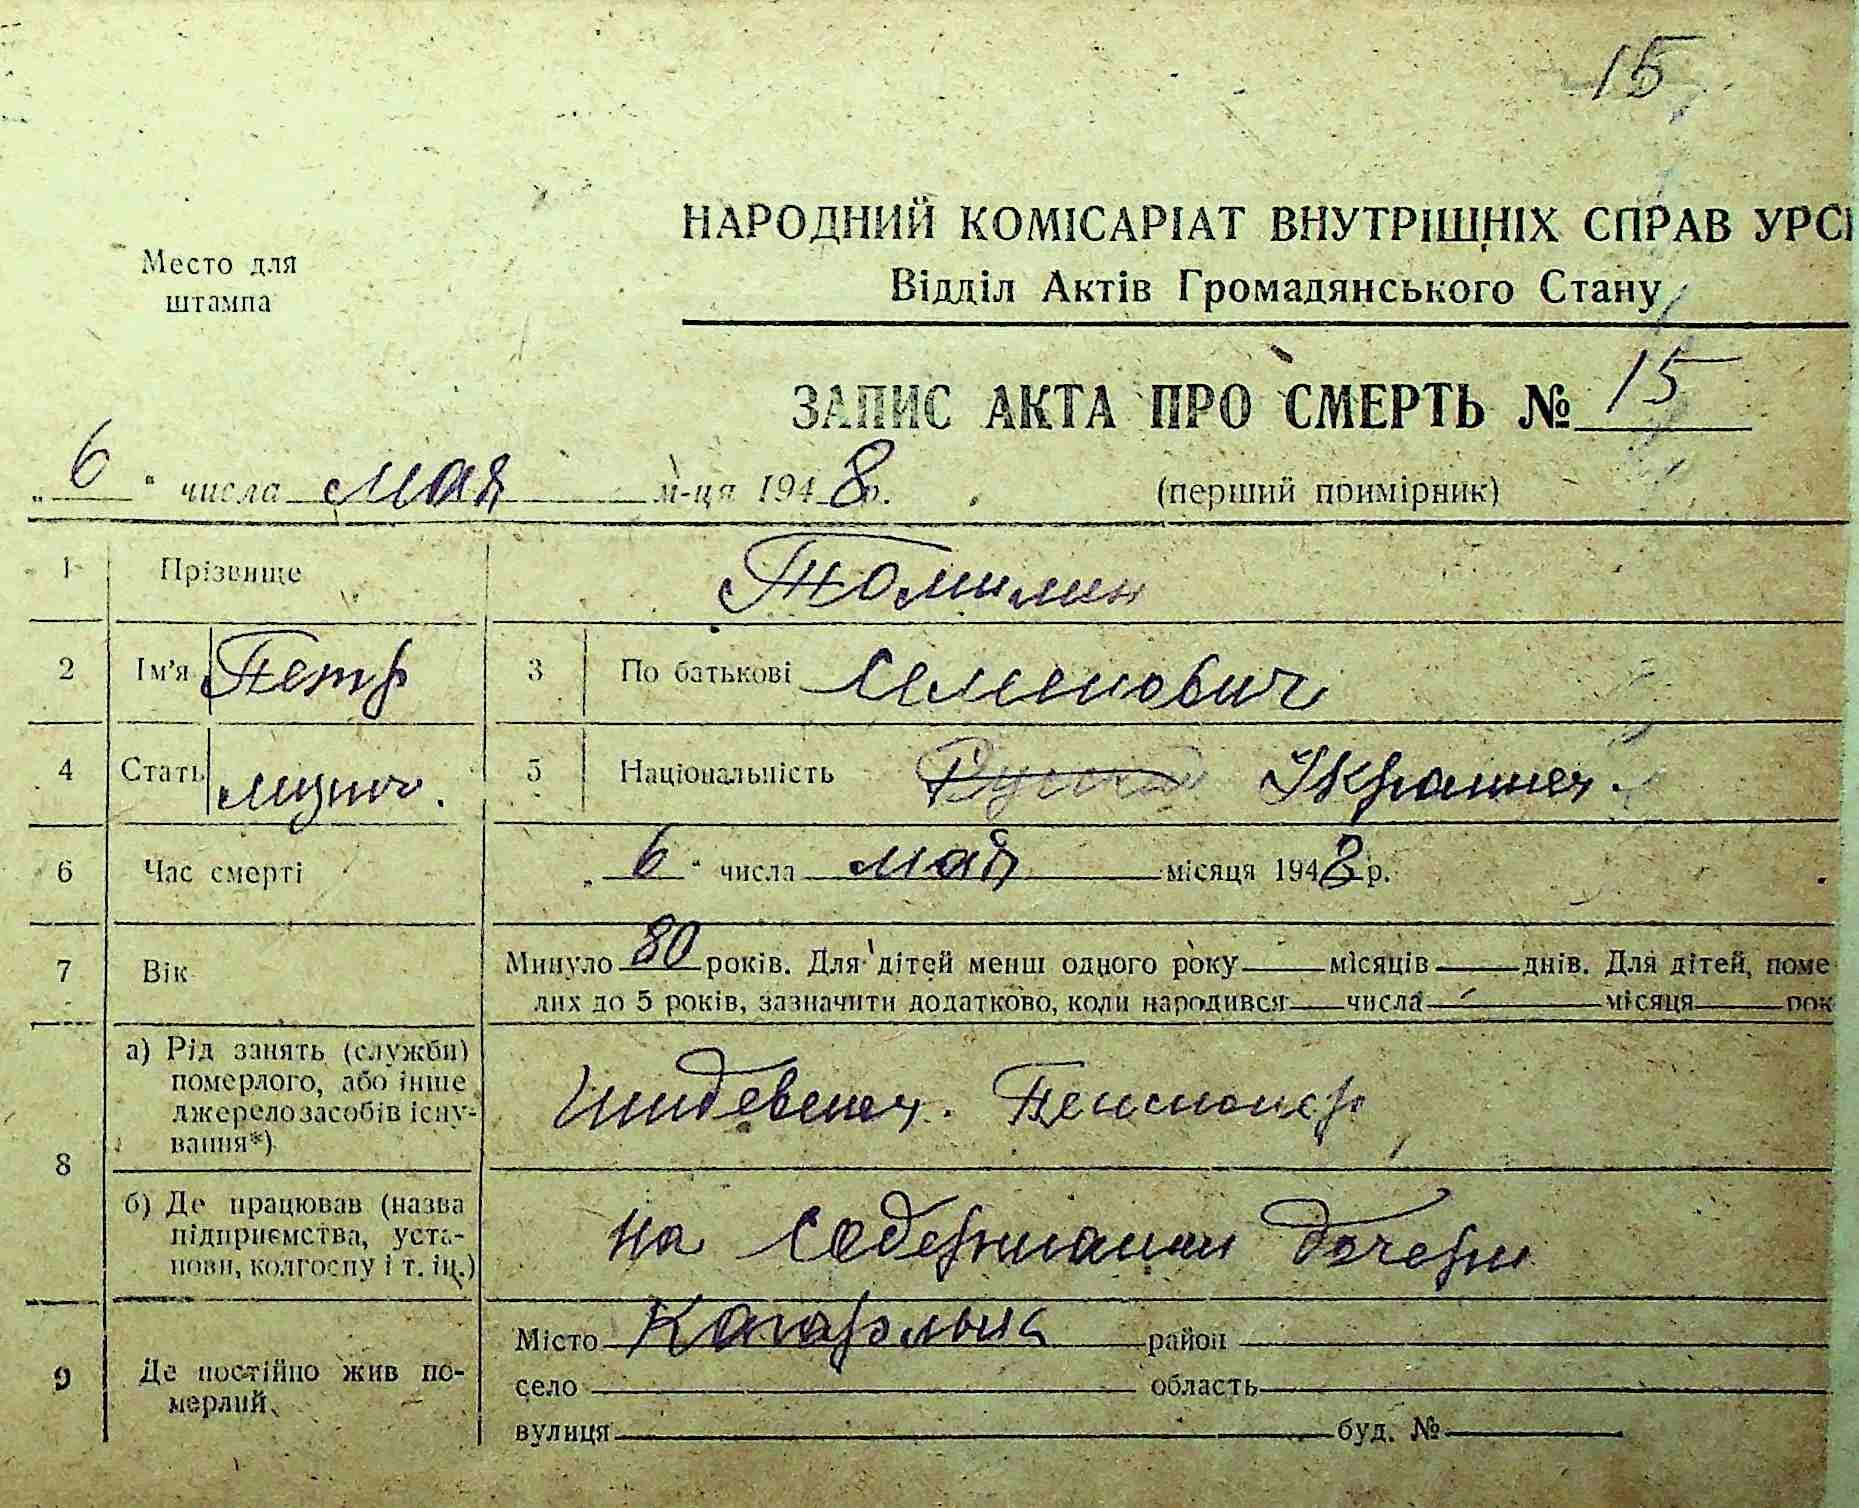 15
НАРОДНИЙ КОМІСАРІАТ ВНУТРІШНІХ СПРАВ УРС
Место для
штампа
Відділ Актів Громадянського Стану
ЗАПИС АКТА ПРО СМЕРТЬ № 15
„6“ числа мая м-ця 1948 р. (перший примірник)
1 Прізвище Томилин
2 Ім'я Петр 3 По батькові Семенович
4 Стать мужч. 5 Національність Русский Украинец.
6 Час смерті „6“ числа мая місяця 1948 р.
7 Вік Минуло 80 років. Для дітей менш одного року — місяців — днів. Для дітей, поме
лих до 5 років, зазначити додатково, коли народився — числа — місяця — рок
8 а) Рід занять (служби)
померлого, або інше
джерело засобів існу-
вання*)
Иждевенец. Пенсионер
б) Де працював (назва
підприємства, уста-
нови, колгоспу і т. ін.)
на содержании дочери
9 Де постійно жив по-
мерлий
Місто Кагарлык район
село область
вулиця буд. №